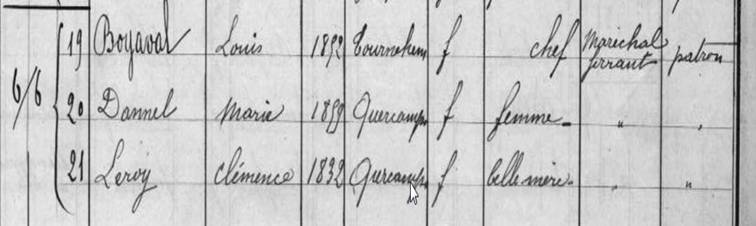 19 Boyaval Louis 1892 Tournehem f chef Maréchal ferrant patron
6/6 20 Dannel Marie 1899 Quercamps f femme " "
21 Leroy Clémence 1832 Quercamps f belle mère " "